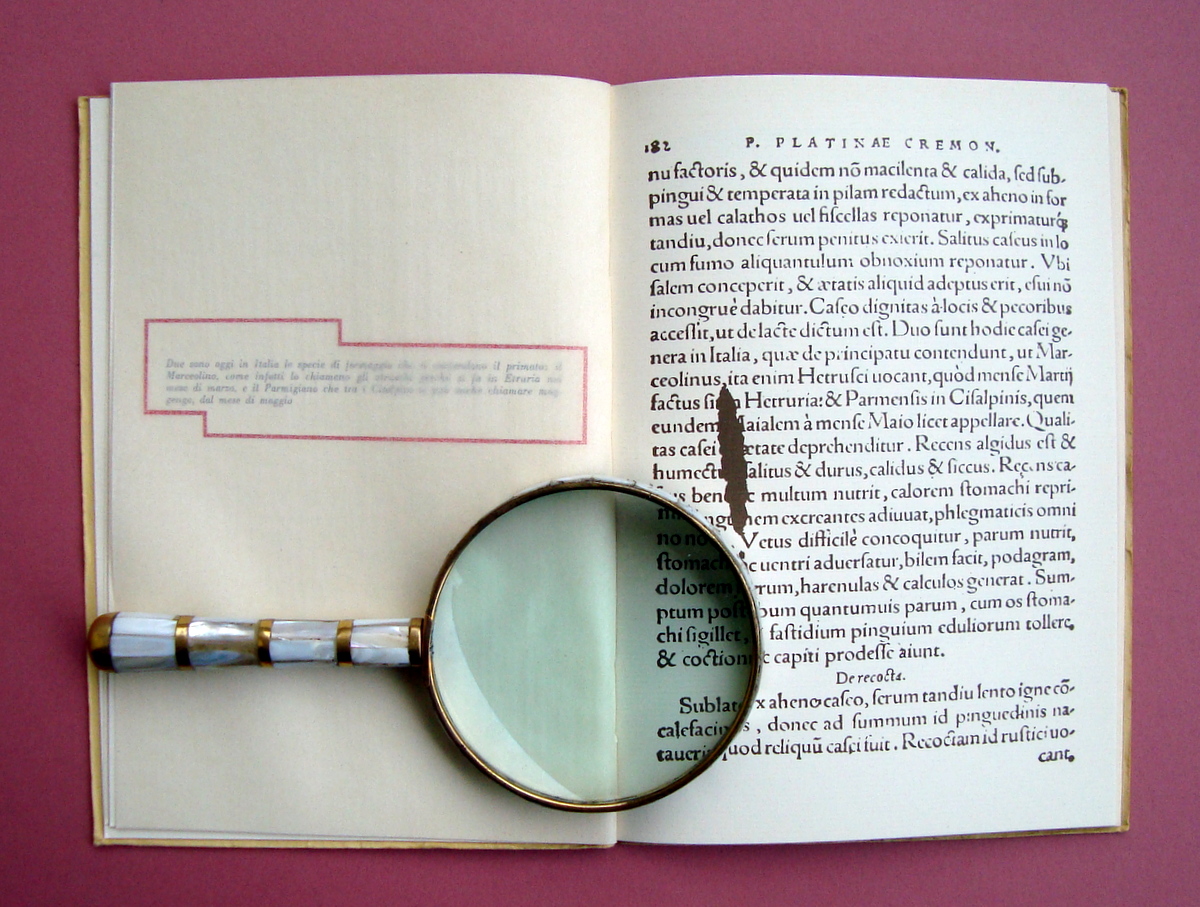 Due sono oggi in Italia le specie di formaggio che si contendono il primato: il
Marceolino, come infatti lo chiamano gli etruschi perché si fa in Etruria nel
mese di marzo, e il Parmigiano che tra i Cisalpini si può anche chiamare mag-
gengo, dal mese di maggio
182 P. PLATINAE CREMON.
nu factoris, & quidem nõ macilenta & calida, ſed ſub-
pingui & temperata in pilam redactum, ex aheno in for
mas uel calathos uel fiſcellas reponatur, exprimaturq́
tandiu, donec ſerum penitus exierit. Salitus caſeus in lo
cum fumo aliquantulum obnoxium reponatur. Vbi
ſalem conceperit, & ætatis aliquid adeptus erit, eſui nõ
incongruè dabitur. Caſeo dignitas à locis & pecoribus
acceſſit, ut de lacte dictum eſt. Duo ſunt hodie caſei ge-
nera in Italia, quæ de principatu contendunt, ut Mar-
ceolinus, ita enim Hetruſci uocant, quòd menſe Martij
factus in Hetruria: & Parmenſis in Ciſalpinis, quem
eundem Maialem à menſe Maio licet appellare. Quali-
tas caſei ætate deprehenditur. Recens algidus eſt &
ſalitus & durus, calidus & ſiccus. Recens ca-
multum nutrit, calorem ſtomachi repri-
excreantes adiuuat, phlegmaticis omni
no Vetus difficilè concoquitur, parum nutrit,
uentri aduerſatur, bilem facit, podagram,
dolorem harenulas & calculos generat. Sum-
ptum quantumuis parum, cum os ſtoma-
chi ſigillet, faſtidium pinguium eduliorum tollere,
& capiti prodeſſe aiunt.
De recocta.
ex aheno caſeo, ſerum tandiu lento igne cõ-
donec ad ſummum id pinguedinis na-
quod reliquũ caſei fuit. Recoctam id ruſtici uo-
cant,